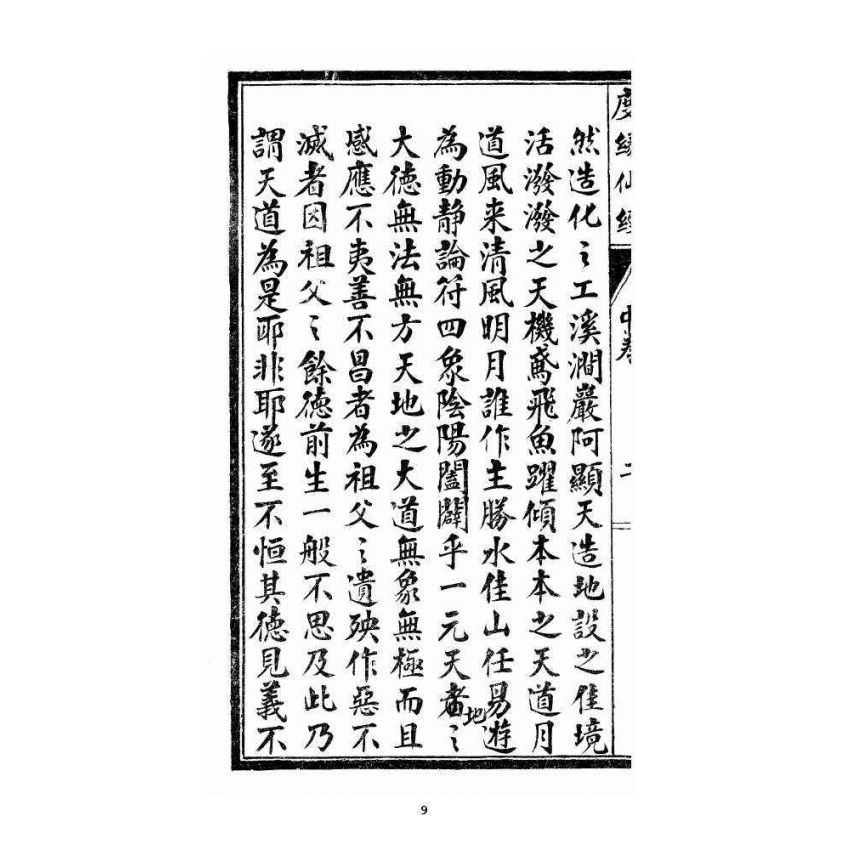 度緣仙經
中卷
二
然造化之工溪澗巖阿顯天造地設之佳境
活潑潑之天機鳶飛魚躍傾本本之天道月
道風来清風明月誰作主勝水佳山任昜遊
為動靜論符四象陰陽闔闢乎一元天畨地之
大德無法無方天地之大道無象無極而且
感應不夷善不昌者為祖父之遺殃作惡不
滅者因祖父之餘德前生一般不思及此乃
謂天道為是耶非耶遂至不恒其德見義不
9